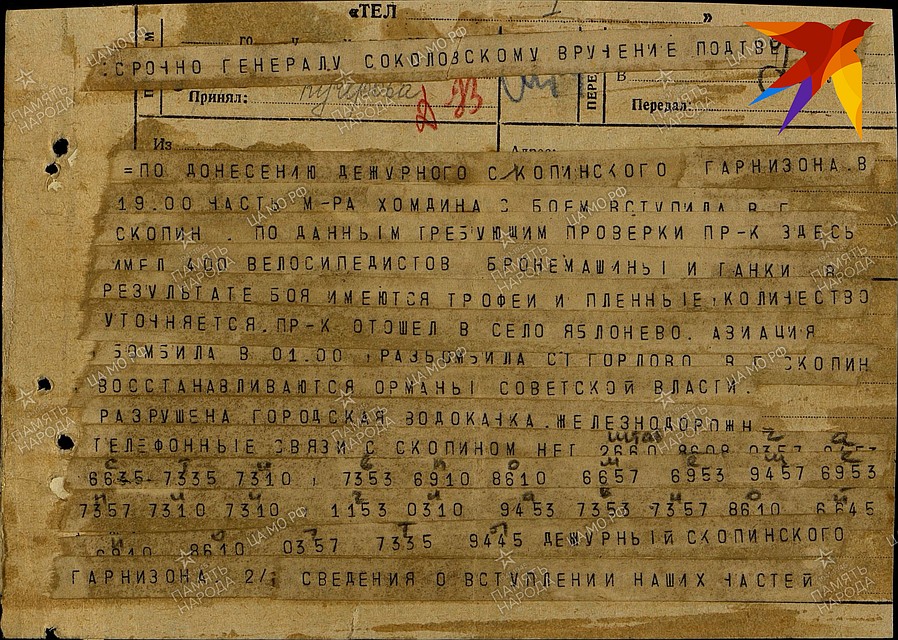 «ТЕЛ
СРОЧНО ГЕНЕРАЛУ СОКОЛОВСКОМУ ВРУЧЕНИЕ ПОДТВЕ
Принял: Передал:
Из
=ПО ДОНЕСЕНИЮ ДЕЖУРНОГО СКОПИНСКОГО ГАРНИЗОНА В
19.00 ЧАСТЬ М-РА ХОМДИНА С БОЕМ ВСТУПИЛА В Г
СКОПИН . ПО ДАННЫМ ТРЕБУЮЩИМ ПРОВЕРКИ ПР-К ЗДЕСЬ
ИМЕЛ 400 ВЕЛОСИПЕДИСТОВ БРОНЕМАШИНЫ И ТАНКИ . В
РЕЗУЛЬТАТЕ БОЯ ИМЕЮТСЯ ТРОФЕИ И ПЛЕННЫЕ, КОЛИЧЕСТВО
УТОЧНЯЕТСЯ. ПР-К ОТОШЕЛ В СЕЛО ЯБЛОНЕВО. АВИАЦИЯ
БОМБИЛА В 01.00 , РАЗБОМБИЛА СТ ГОРЛОВО. В Г СКОПИН
ВОССТАНАВЛИВАЮТСЯ ОРМАНЫ СОВЕТСКОЙ ВЛАСТИ.
РАЗРУШЕНА ГОРОДСКАЯ ВОДОКАЧКА. ЖЕЛЕЗНОДОРОЖН
ТЕЛЕФОННЫЕ СВЯЗИ С СКОПИНОМ НЕТ 2660 8608 0357
6635 7335 7310 , 7353 6910 8610 6657 6953 9457 6953
7357 7310 7310 1153 0310 9453 7353 7357 8610 6645
6910 8610 0357 7335 9445 ДЕЖУРНЫЙ СКОПИНСКОГО
ГАРНИЗОНА. 2/; СВЕДЕНИЯ О ВСТУПЛЕНИИ НАШИХ ЧАСТЕЙ